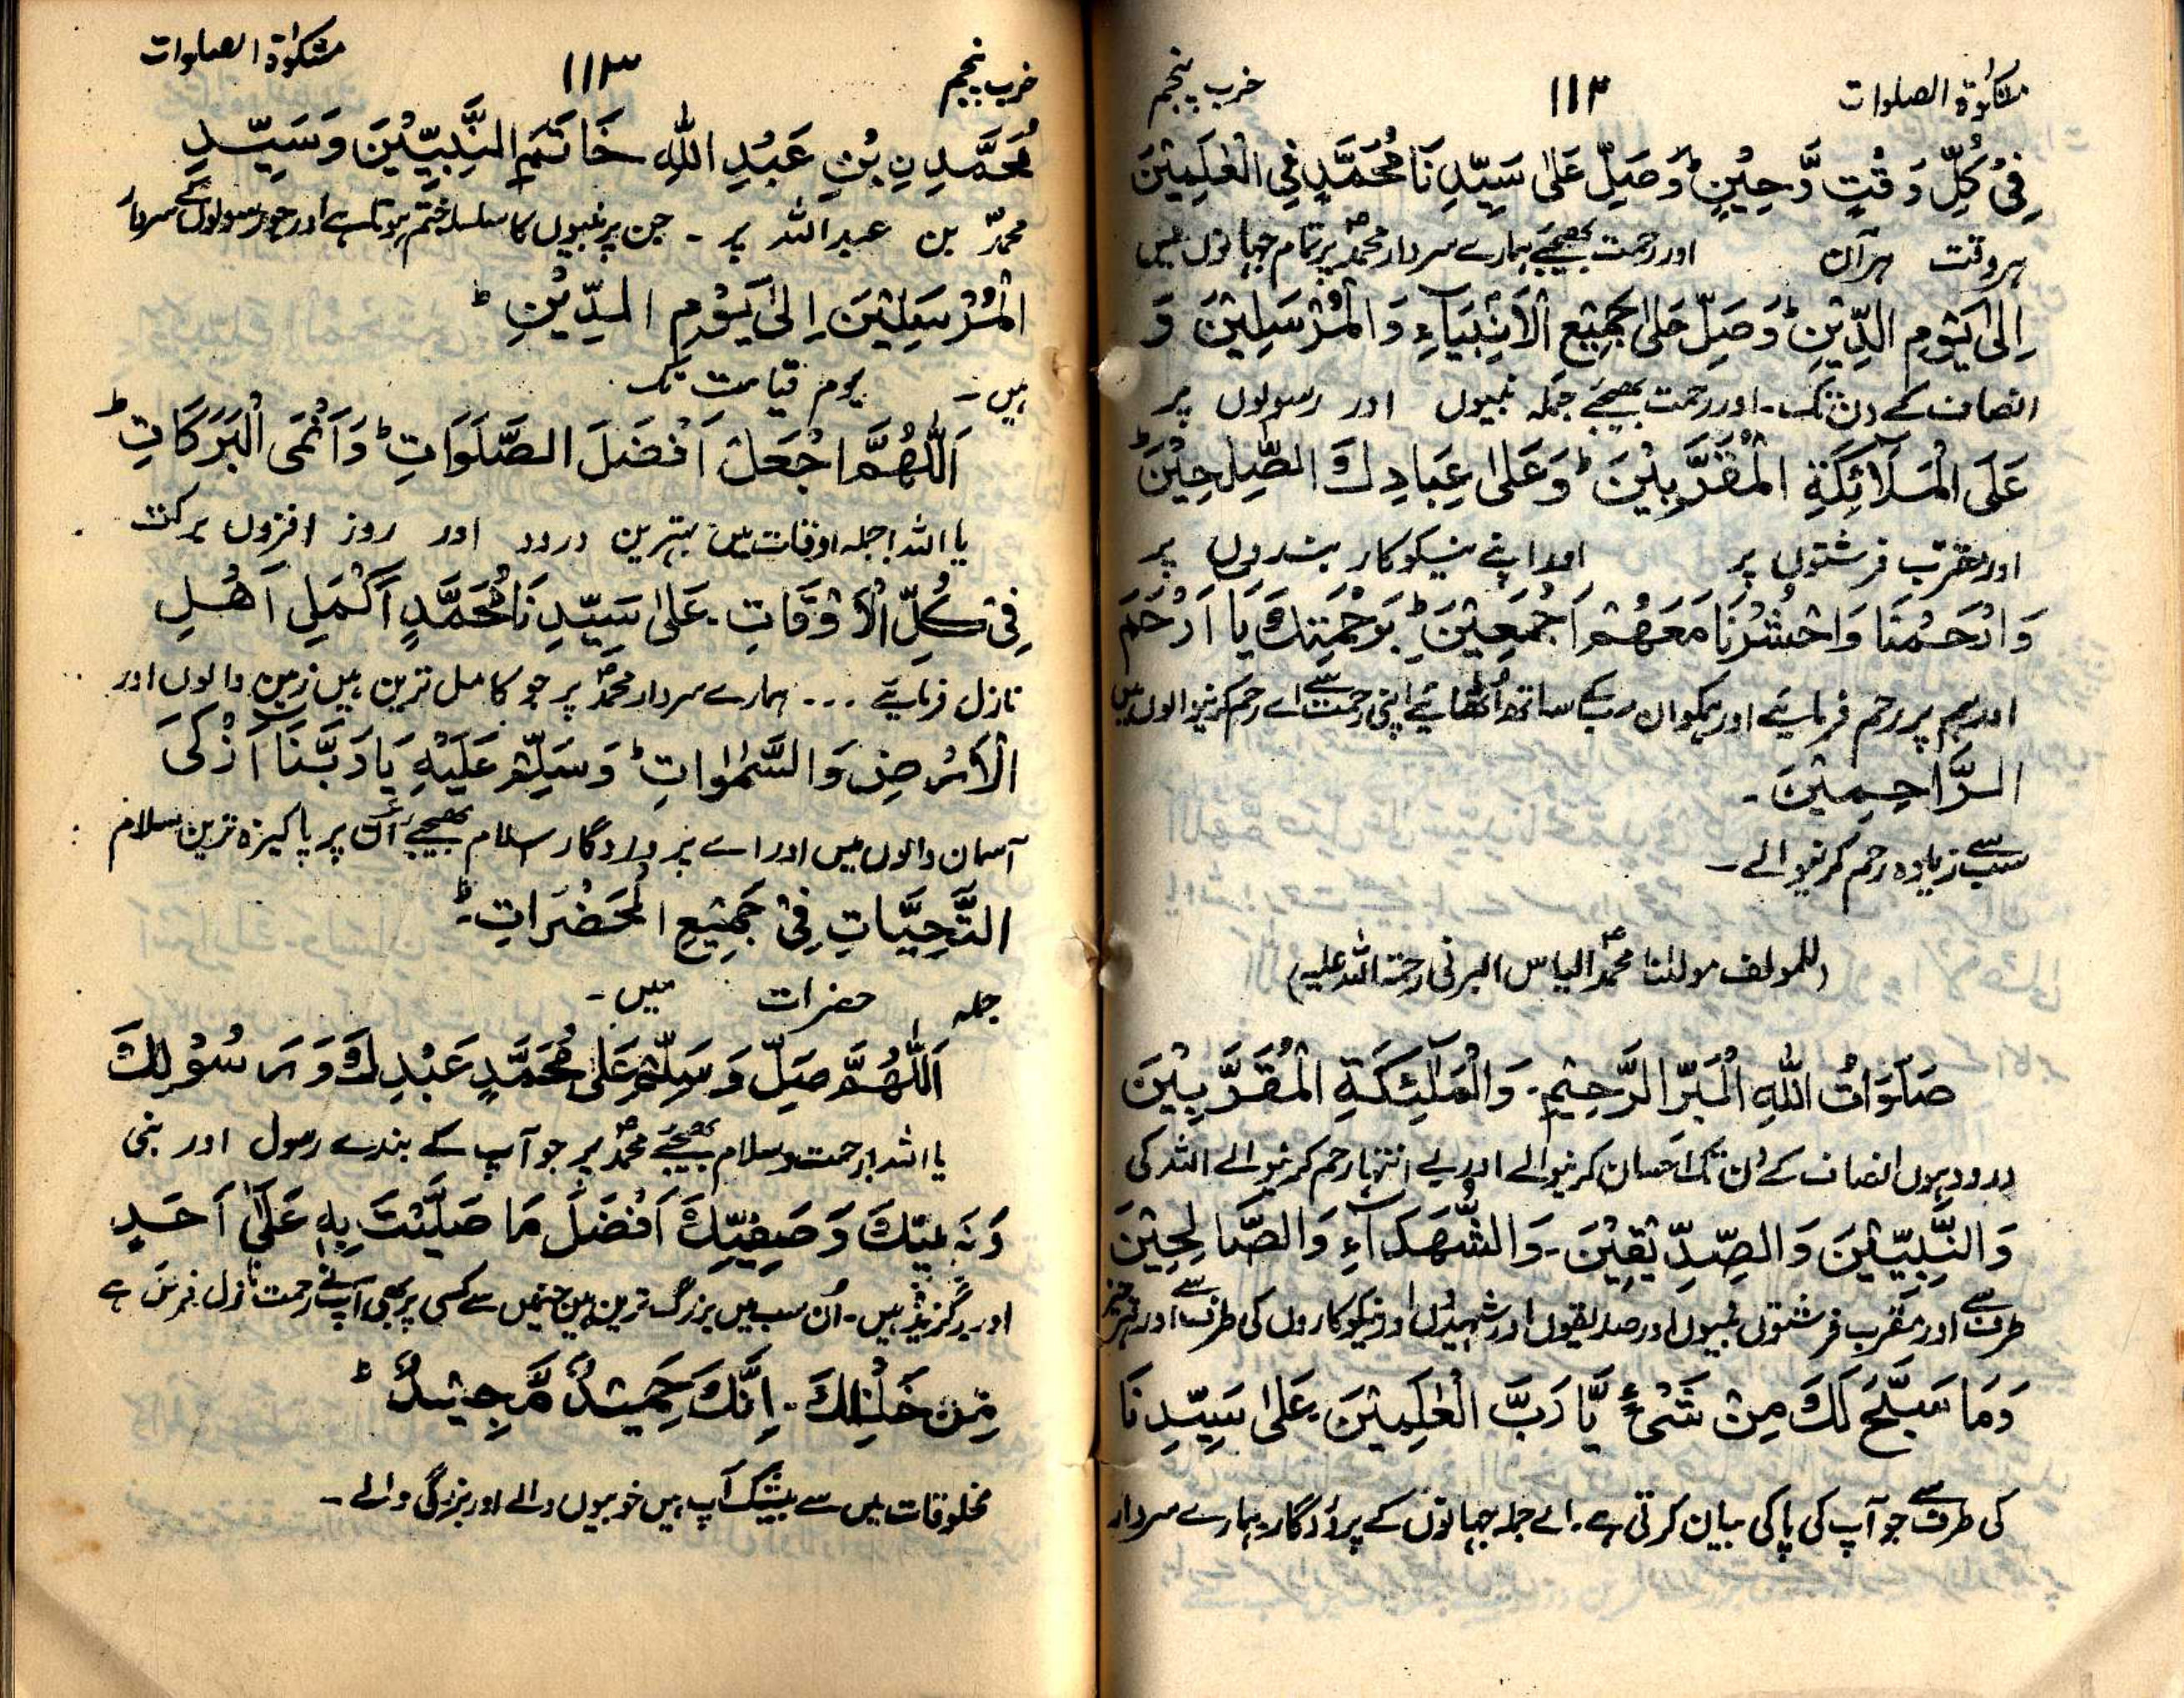 مشکوٰۃ الصلوات ۱۱۲ حزب پنجم
فِیْ کُلِّ وَقْتٍ وَّحِیْنٍ ؕ وَصَلِّ عَلٰی سَیِّدِنَا مُحَمَّدٍ فِی الْعٰلَمِیْنَ
ہر وقت ہر آن اور رحمت بھیجئے ہمارے سردار محمدؐ پر تمام جہانوں میں
اِلٰی یَوْمِ الدِّیْنِ ؕ وَصَلِّ عَلٰی جَمِیْعِ الْاَنْبِیَآءِ وَالْمُرْسَلِیْنَ وَ
انصاف کے دن تک۔ اور رحمت بھیجئے جملہ نبیوں اور رسولوں پر
عَلَی الْمَلَآئِکَةِ الْمُقَرَّبِیْنَ ؕ وَعَلٰی عِبَادِكَ الصّٰلِحِیْنَ ؕ
اور مقرب فرشتوں پر اور اپنے نیکوکار بندوں پر
وَارْحَمْنَا وَاحْشُرْنَا مَعَهُمْ اَجْمَعِیْنَ ؕ بِرَحْمَتِكَ یَا اَرْحَمَ
اور ہم پر رحم فرمائیے اور ہمکو ان سبکے ساتھ اُٹھائیے اپنی رحمت سے اے رحم کرنیوالوں میں
الرَّاحِمِیْنَ ۔
سب سے زیادہ رحم کرنیوالے ۔
(للمولف مولٰنا محمدؐ الیاس البرنی رحمۃ اللہ علیہ)
صَلَوَاتُ اللّٰهِ الْبَرِّ الرَّحِیْمِ ۔ وَالْمَلٰٓئِکَةِ الْمُقَرَّبِیْنَ
درود ہوں انصاف کے دن تک احسان کرنیوالے اور بے انتہا رحم کرنیوالے اللہ کی
وَالنَّبِیّٖیْنَ وَالصِّدِّیْقِیْنَ ۔ وَالشُّهَدَآءِ وَالصَّالِحِیْنَ
طرف سے اور مقرب فرشتوں نبیوں اور صدیقوں اور شہیدوں اور نیکوکاروں کی طرف سے اور ہر چیز
وَمَا سَبَّحَ لَكَ مِنْ شَیْءٍ یَّا رَبَّ الْعٰلَمِیْنَ ۔ عَلٰی سَیِّدِنَا
کی طرف سے جو آپ کی پاکی بیان کرتی ہے ۔ اے جملہ جہانوں کے پروردگار ہمارے سردار
حزب پنجم ۱۱۳ مشکوٰۃ الصلوات
مُحَمَّدِ نِ بْنِ عَبْدِ اللّٰهِ خَاتَمِ النَّبِیّٖیْنَ وَسَیِّدِ
محمدؐ بن عبداللہ پر ۔ جن پر نبیوں کا سلسلہ ختم ہوتا ہے اور جو رسولوں کے سردار
الْمُرْسَلِیْنَ اِلٰی یَوْمِ الدِّیْنِ ؕ
ہیں ۔ یوم قیامت تک
اَللّٰهُمَّ اجْعَلْ اَفْضَلَ الصَّلَوَاتِ ؕ وَاَنْمَی الْبَرَکَاتِ ؕ
یا اللہ! جملہ اوقات میں بہترین درود اور روز افزوں برکت
فِیْ کُلِّ الْاَوْقَاتِ ۔ عَلٰی سَیِّدِنَا مُحَمَّدٍ اَکْمَلِ اَهْلِ
نازل فرمائیے ... ہمارے سردار محمدؐ پر جو کامل ترین ہیں زمین والوں اور
الْاَرْضِ وَالسَّمٰوَاتِ ؕ وَسَلِّمْ عَلَیْهِ یَا رَبَّنَا اَزْکَی
آسمان والوں میں اور اے پروردگار سلام بھیجئے آپؐ پر پاکیزہ ترین سلام
التَّحِیَّاتِ فِیْ جَمِیْعِ الْحَضَرَاتِ ؕ
جملہ حضرات میں ۔
اَللّٰهُمَّ صَلِّ وَسَلِّمْ عَلٰی مُحَمَّدٍ عَبْدِكَ وَرَسُوْلِكَ
یا اللہ! رحمت و سلام بھیجئے محمدؐ پر جو آپ کے بندے رسول اور نبی
وَنَبِیِّكَ وَصَفِیِّكَ اَفْضَلَ مَا صَلَّیْتَ بِهٖ عَلٰٓی اَحَدٍ
اور برگزیدہ ہیں ۔ اُن سب میں بزرگ ترین ہیں جنمیں سے کسی پر بھی آپ نے رحمت نازل فرمائی ہے
مِّنْ خَلْقِكَ ۔ اِنَّكَ حَمِیْدٌ مَّجِیْدٌ ؕ
مخلوقات میں سے بیشک آپ ہیں خوبیوں والے اور بزرگی والے ۔